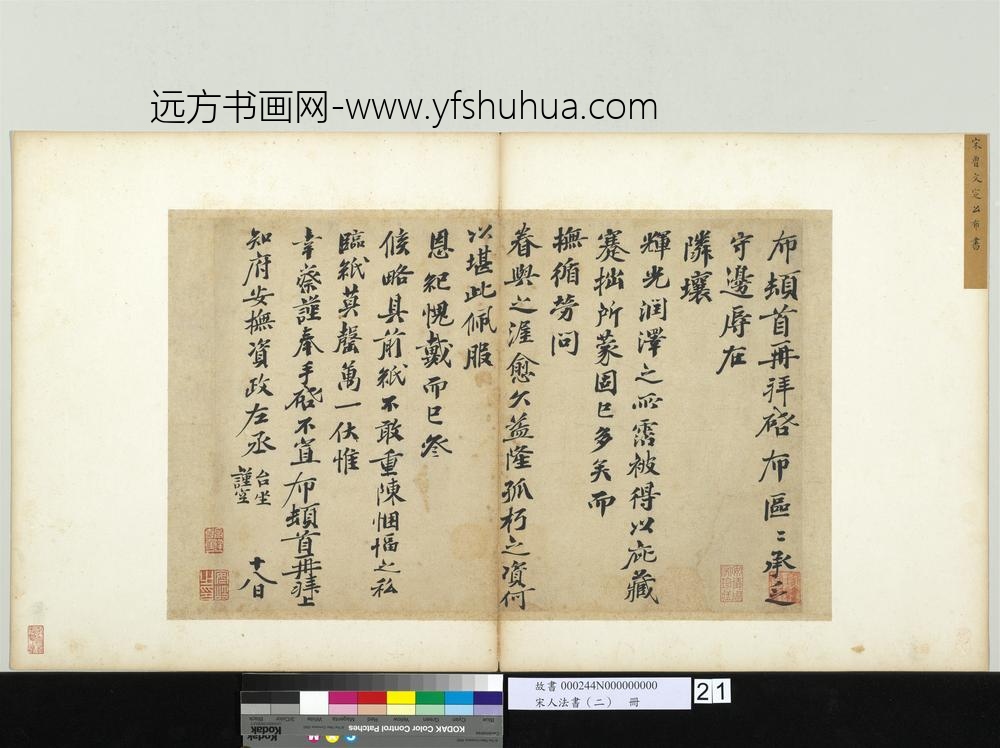 远方书画网-www.yfshuhua.com
宋曾文定公布書
布頓首再拜啓布區〻承乏
守邊辱在
隣壤
輝光潤澤之所霑被得以庇藏
蹇拙所蒙固已多矣而
撫循勞問
眷與之渥愈久益隆孤朽之資何
以堪此佩服
恩紀愧戴而已冬
候略具前紙不敢重陳悃愊之私
臨紙莫罄萬一伏惟
幸察謹奉手啓不宣布頓首再拜上
知府安撫資政左丞 台坐
謹空
十八日
故書 000244N000000000
宋人法書（二） 冊
21
Blue
Cyan
Green
Yellow
Red
Magenta
White
3/Color
Black
KODAK Color Control Patches
Kodak